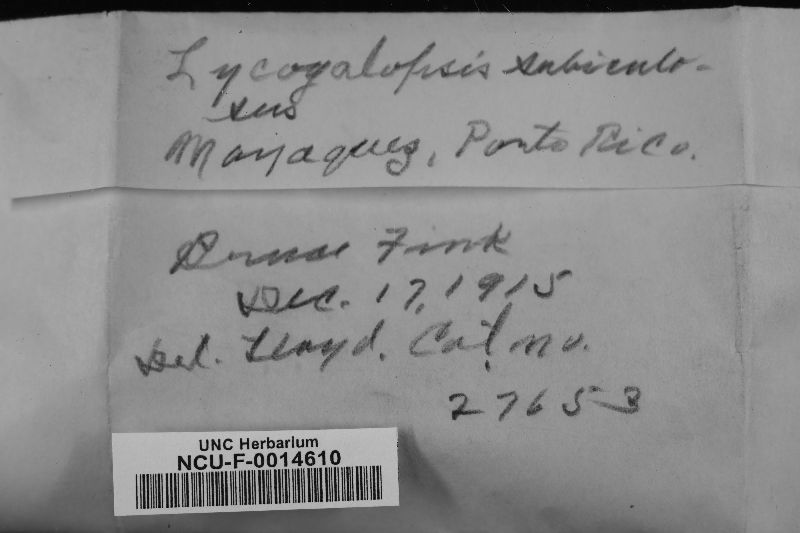 Lycogalopsis subiculo-
sus
Mayaguez, Porto Rico.
Bruce Fink
Dec. 17, 1915
Det. Lloyd. Cat. no.
27653
UNC Herbarium
NCU-F-0014610